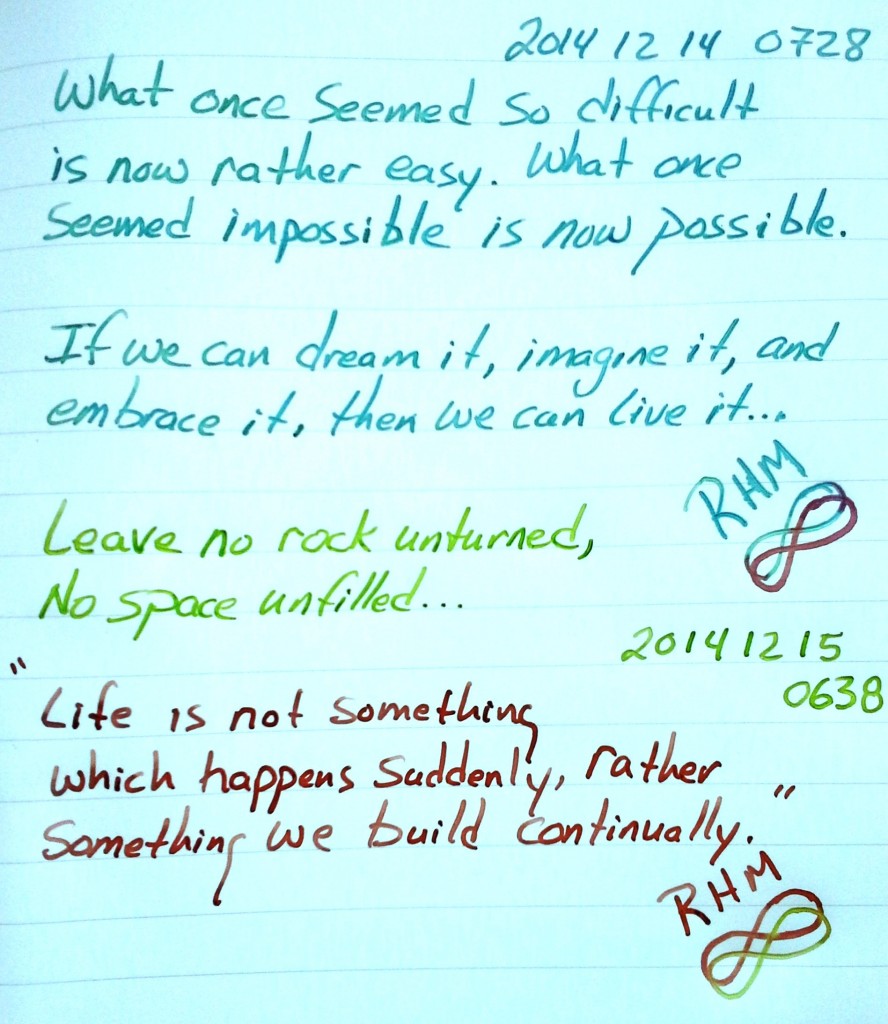 2014 12 14 0728
What once seemed so difficult
is now rather easy. What once
seemed impossible is now possible.
If we can dream it, imagine it, and
embrace it, then we can live it...
RHM
Leave no rock unturned,
No space unfilled...
2014 12 15
0638
"Life is not something
which happens suddenly, rather
something we build continually."
RHM